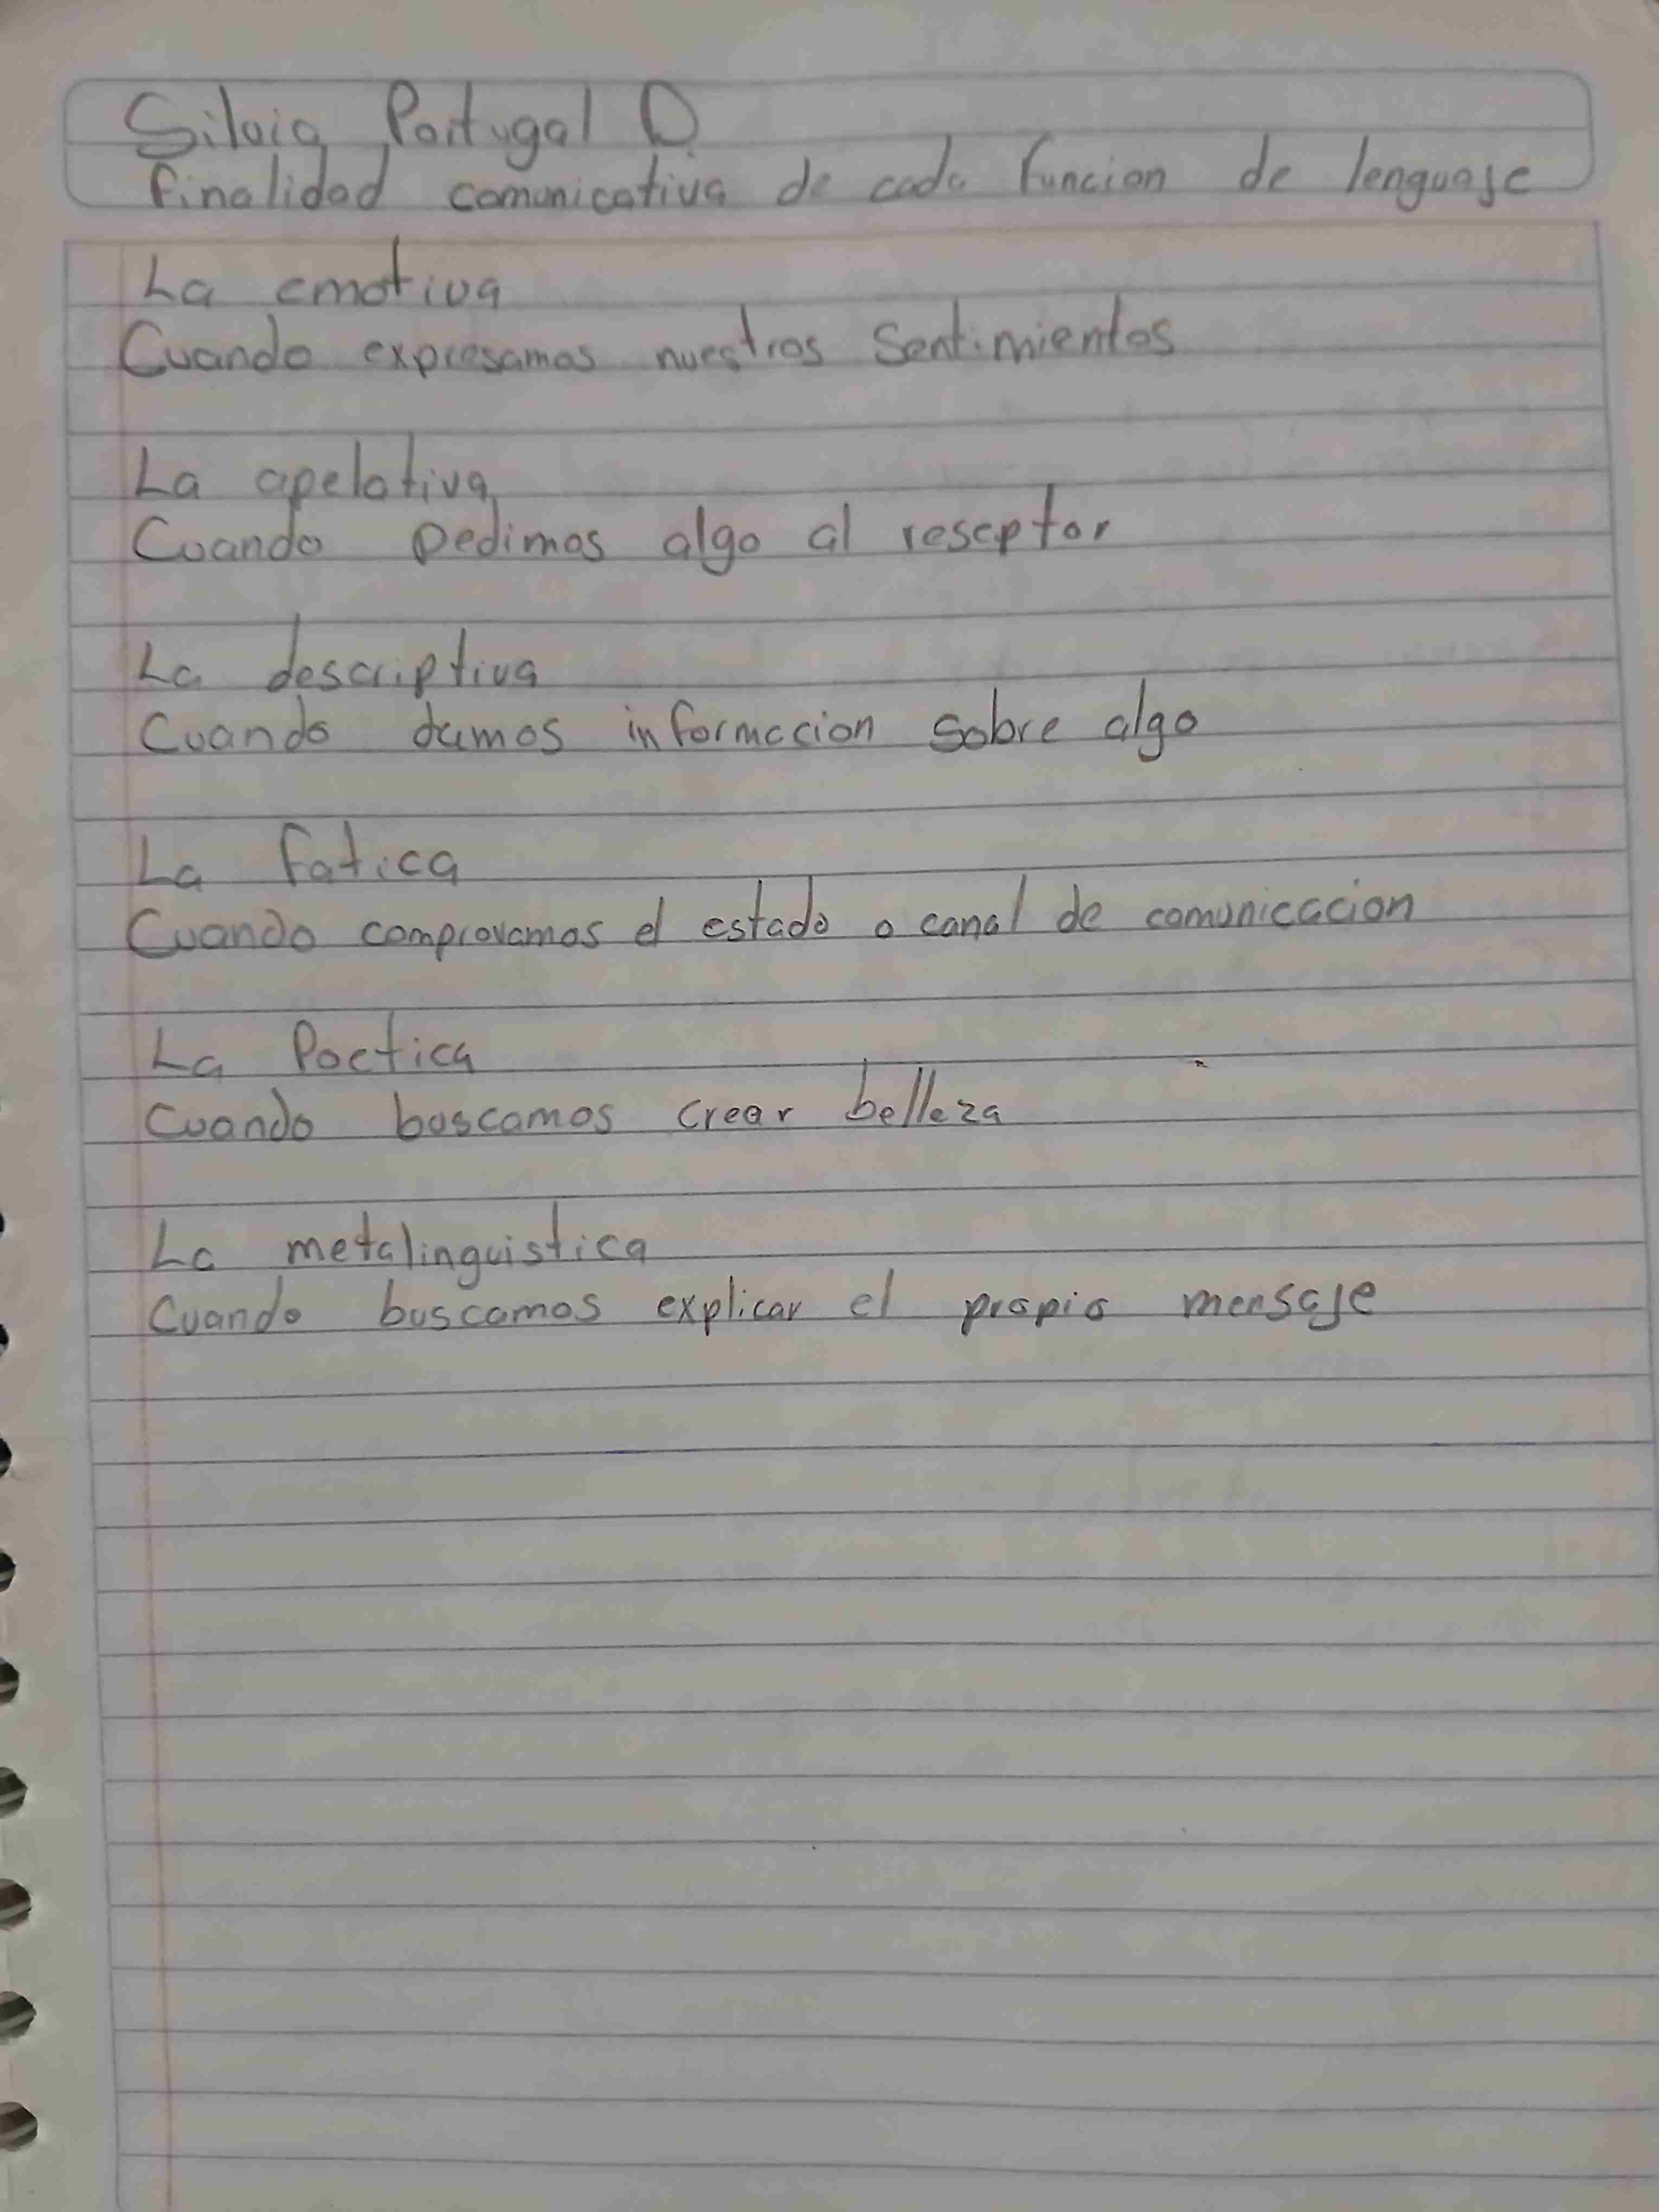 Silvia Portugal D
Finalidad comunicativa de cada funcion de lenguaje
La emotiva
Cuando expresamos nuestros Sentimientos
La apelativa
Cuando pedimos algo al reseptor
La descriptiva
Cuando damos informacion sobre algo
La fatica
Cuando comprovamos el estado o canal de comunicacion
La Poetica
Cuando buscamos crear belleza
La metalinguistica
Cuando buscamos explicar el propio mensaje